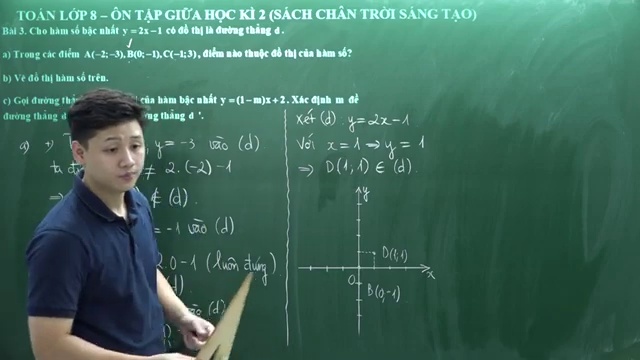 TOÁN LỚP 8 – ÔN TẬP GIỮA HỌC KÌ 2 (SÁCH CHÂN TRỜI SÁNG TẠO)
Bài 3. Cho hàm số bậc nhất y = 2x − 1 có đồ thị là đường thẳng d.
a) Trong các điểm A(−2; −3), B(0; −1), C(−1; 3), điểm nào thuộc đồ thị của hàm số?
b) Vẽ đồ thị hàm số trên.
c) Gọi đường của hàm bậc nhất y = (1 − m)x + 2. Xác định m để
đường thẳng d thẳng d '.
a)
y = −3 vào (d)
≠ 2.(−2) −1
⇒ ∉ (d).
= −1 vào (d)
2.0 −1 (luôn đúng)
(d).
vào (d)
Xét (d): y = 2x − 1
Với x = 1 ⇒ y = 1
⇒ D(1; 1) ∈ (d).
y
D(1; 1)
x
O
B(0; −1)